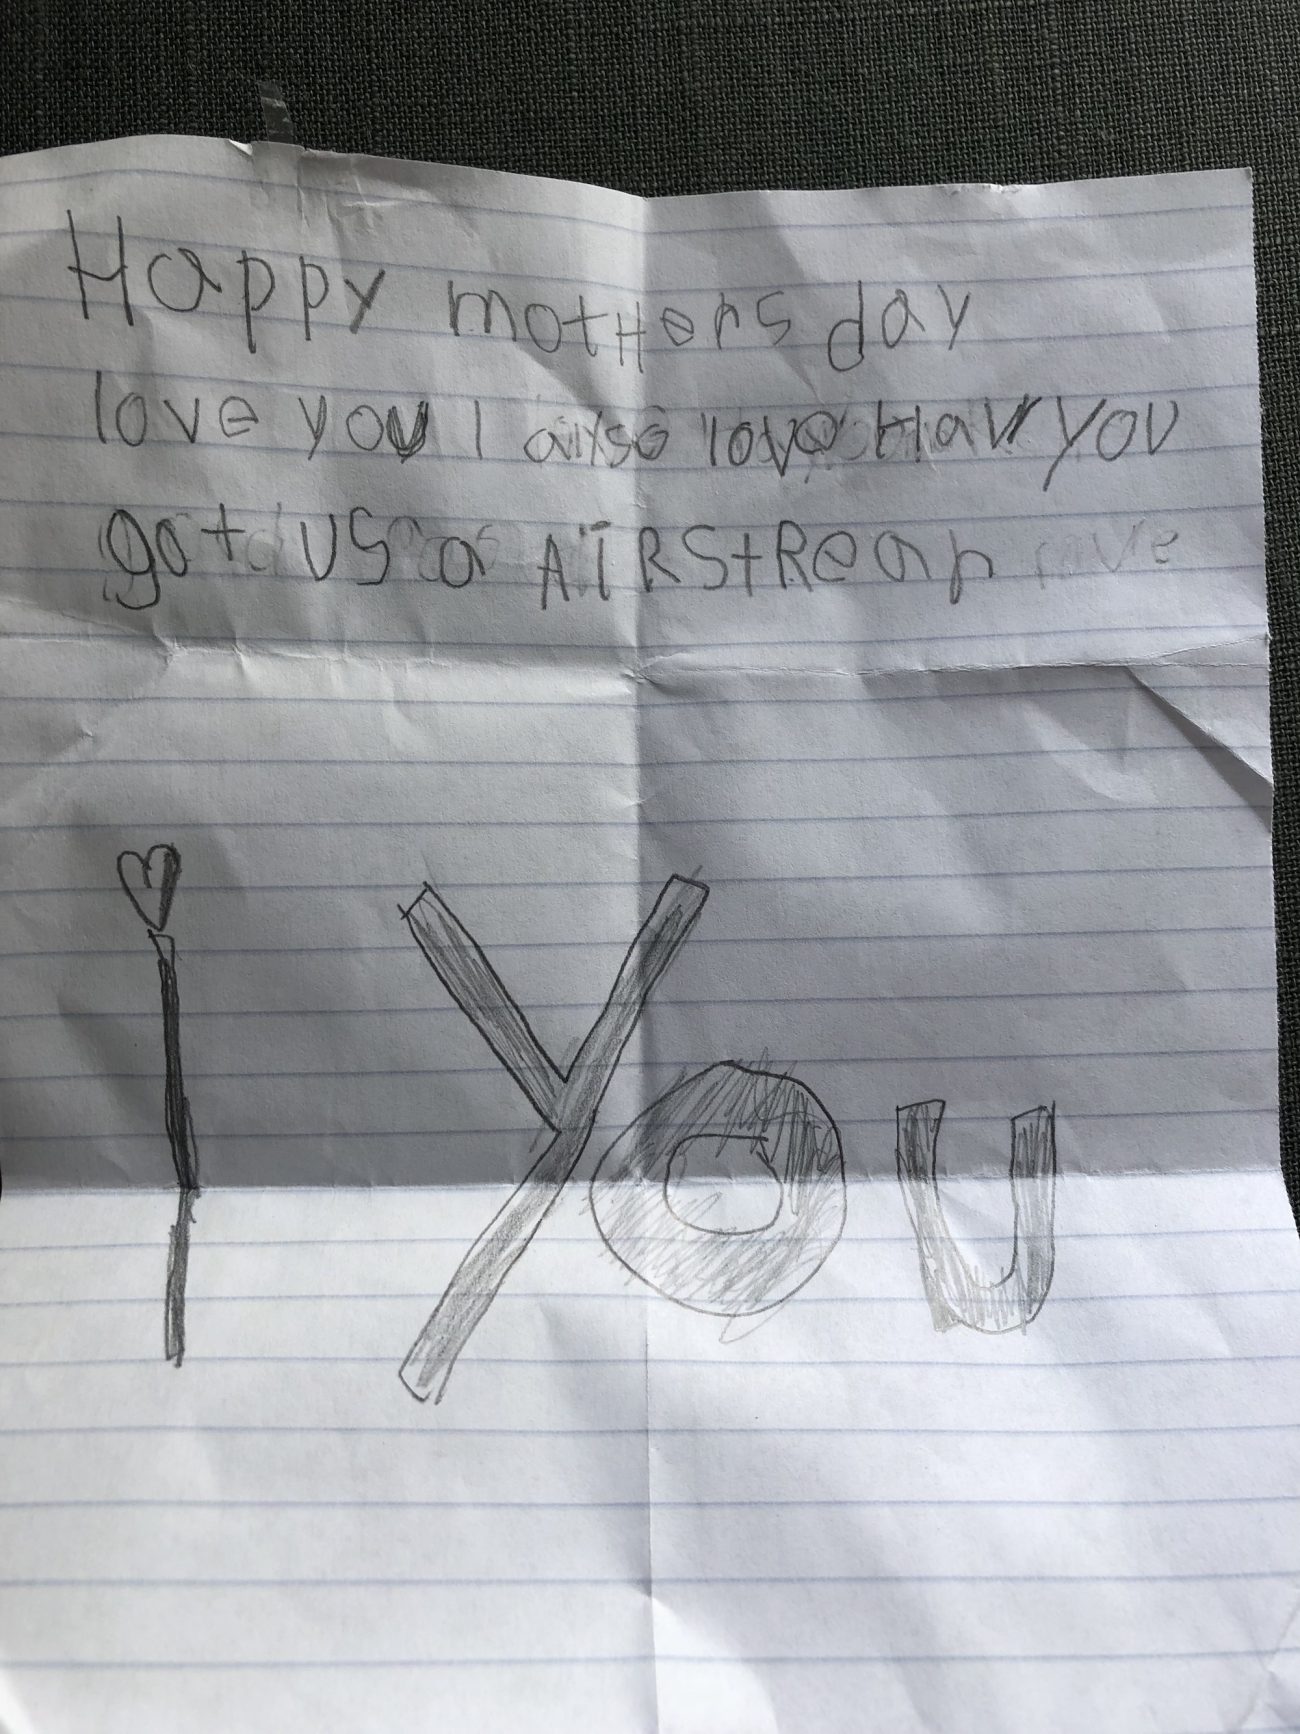 Happy motHers day
love you I also love Hav you
got US a AIRStRean
I You